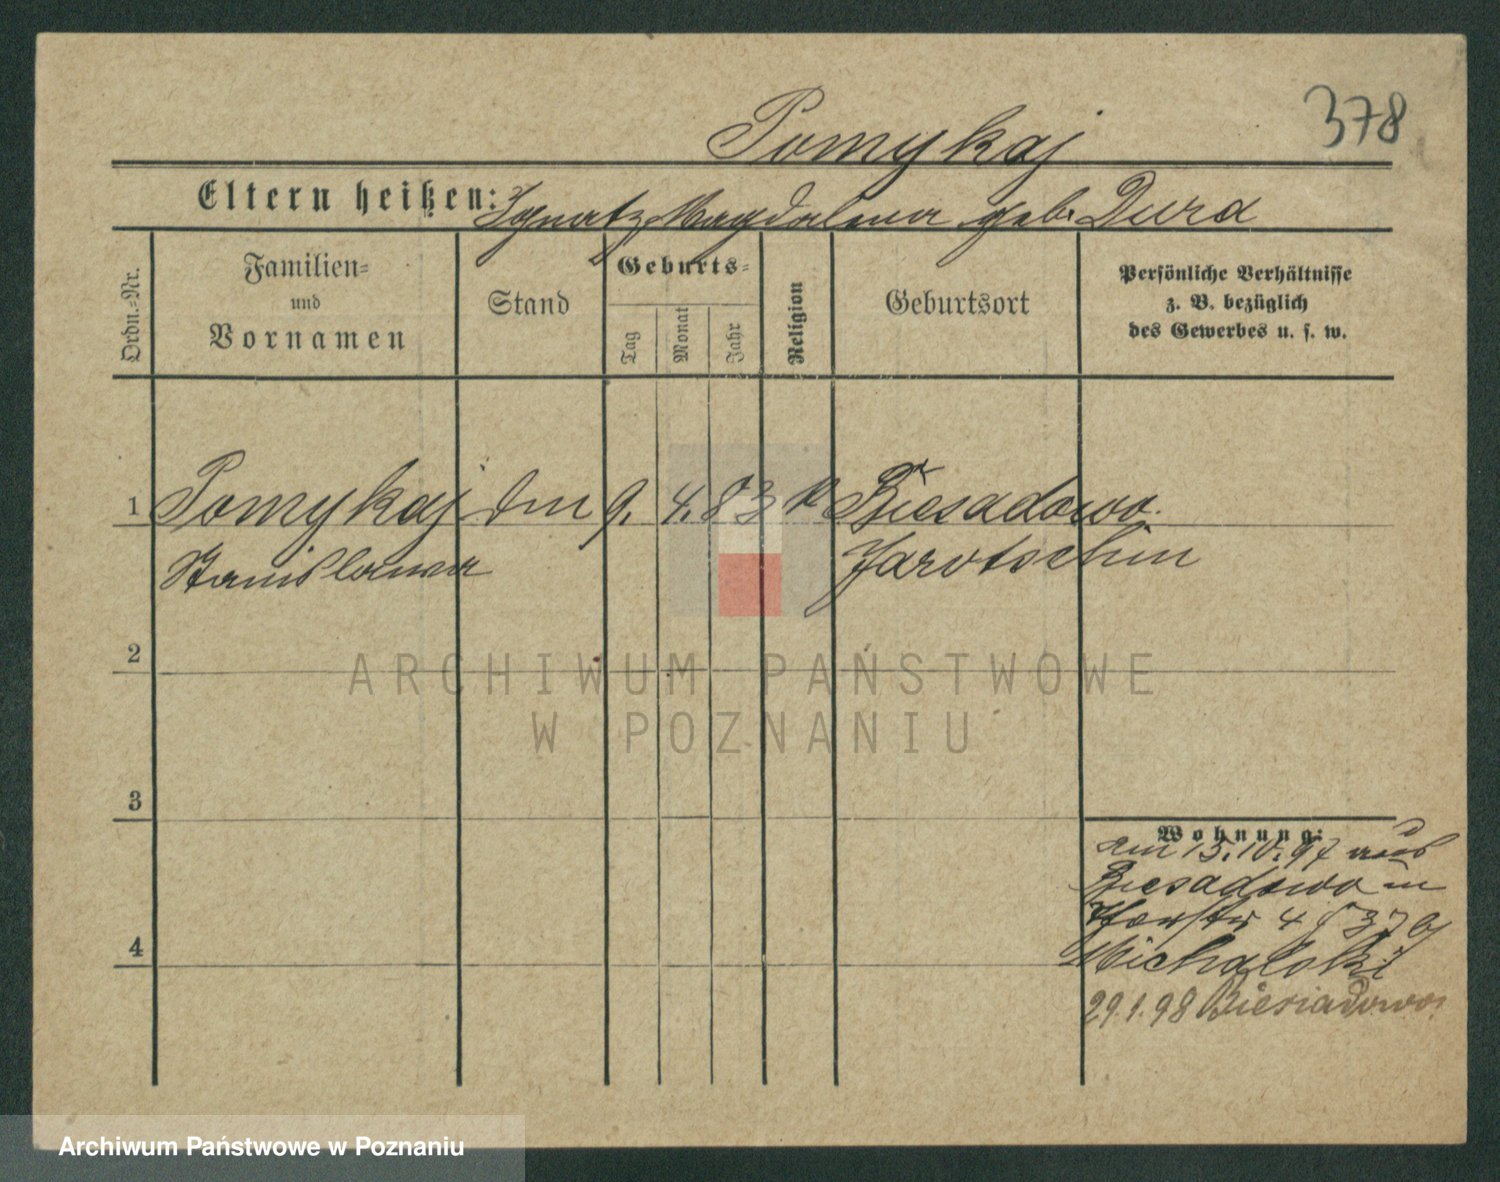 378
Pomykaj
Eltern heißen: Ignatz Magdalena geb. Dura
Ordn.-Nr.
Familien-
und
Vornamen
Stand
Geburts-
Tag
Monat
Jahr
Religion
Geburtsort
Persönliche Verhältnisse
z. B. bezüglich
des Gewerbes u. s. w.
1 Pomykaj 9. 4. 83 k Biesadowo
Stanislawa Jarotschin
2
ARCHIWUM PAŃSTWOWE
W POZNANIU
3
Wohnung:
am 15.10.97 aus
Biesadowo in
4
Michalski
29.1.98 Biesiadowo
Archiwum Państwowe w Poznaniu